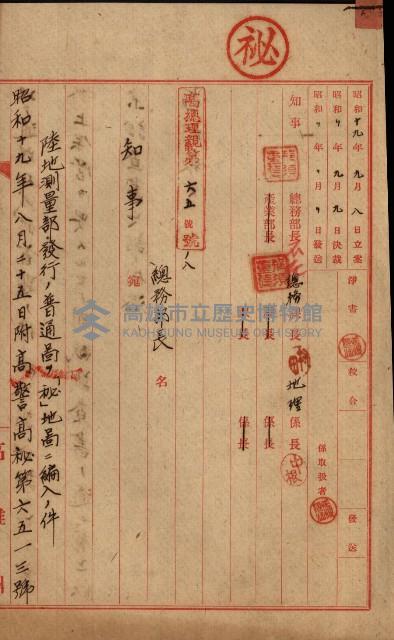 秘
昭和十九年九月八日立案
昭和〃年九月九日決裁
昭和〃年〃月〃日發送
淨書
校合
發送
知事
總務部長
產業部長
總務課長
地理係長
課長
係長
係長
係取扱者
六五號
號ノ八
知事宛
總務部長名
陸地測量部發行ノ普通圖ヲ「秘」地圖ニ編入ノ件
昭和十九年八月二十五日附高警高秘第六五一三號
高雄市立歷史博物館
KAOHSIUNG MUSEUM OF HISTORY